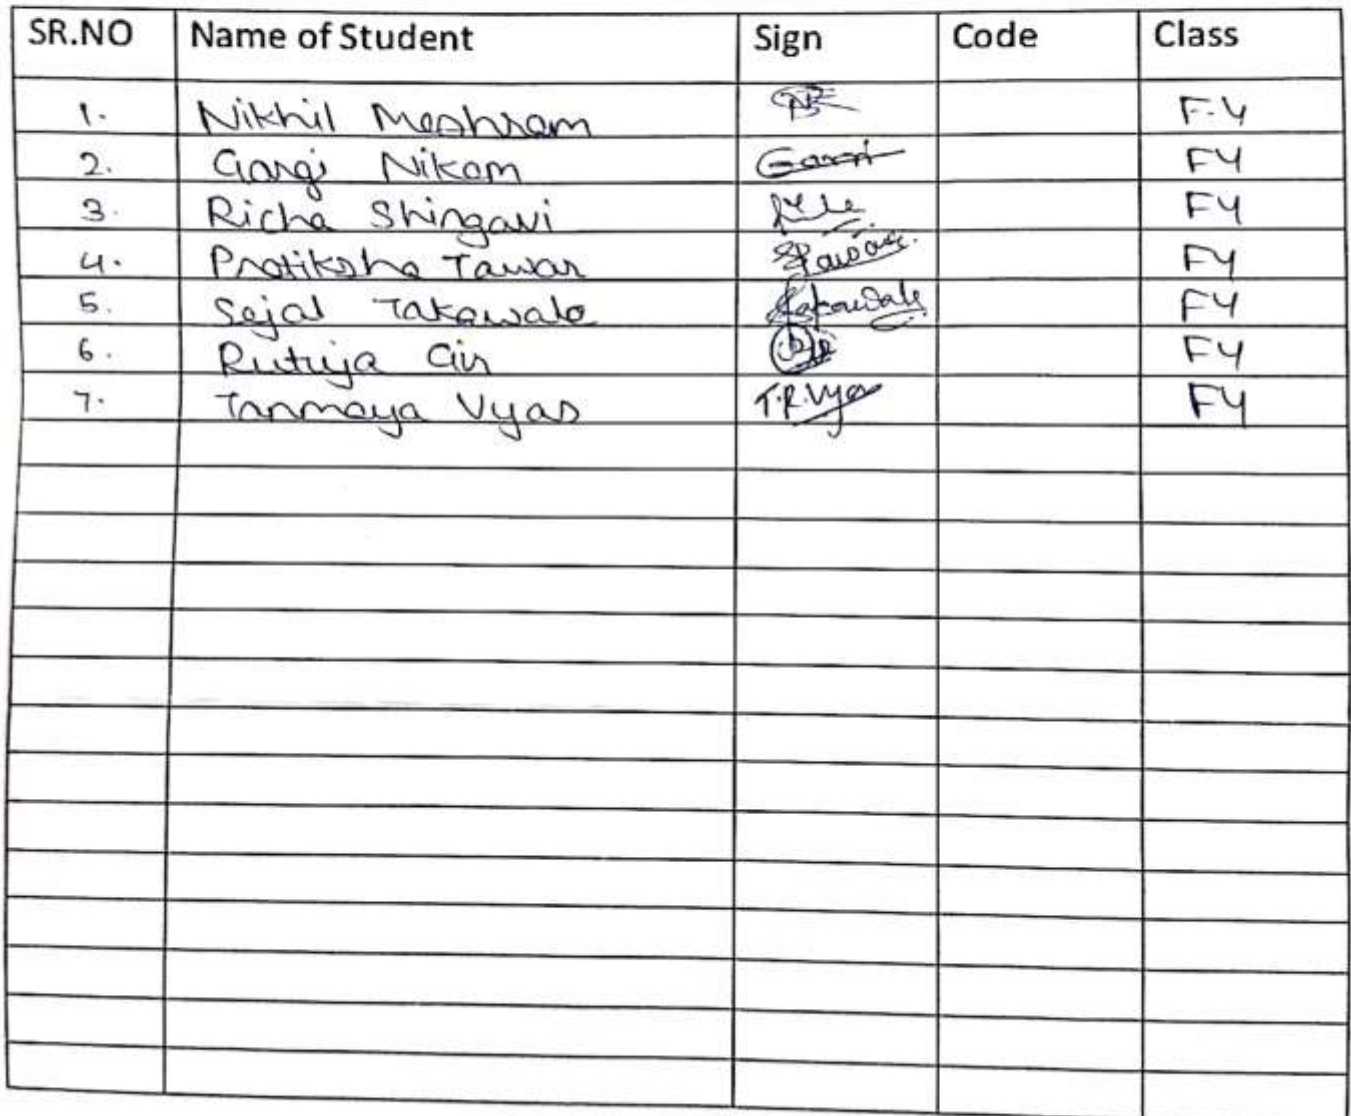 SR.NO Name of Student Sign Code Class
1. Nikhil Meshram F.Y
2. Gargi Nikam Gargi FY
3. Richa Shingavi FY
4. Pratiksha Tawar FY
5. Sejal Takawale Takawale FY
6. Rutuja Gir FY
7. Tanmaya Vyas T.R.Vyas FY